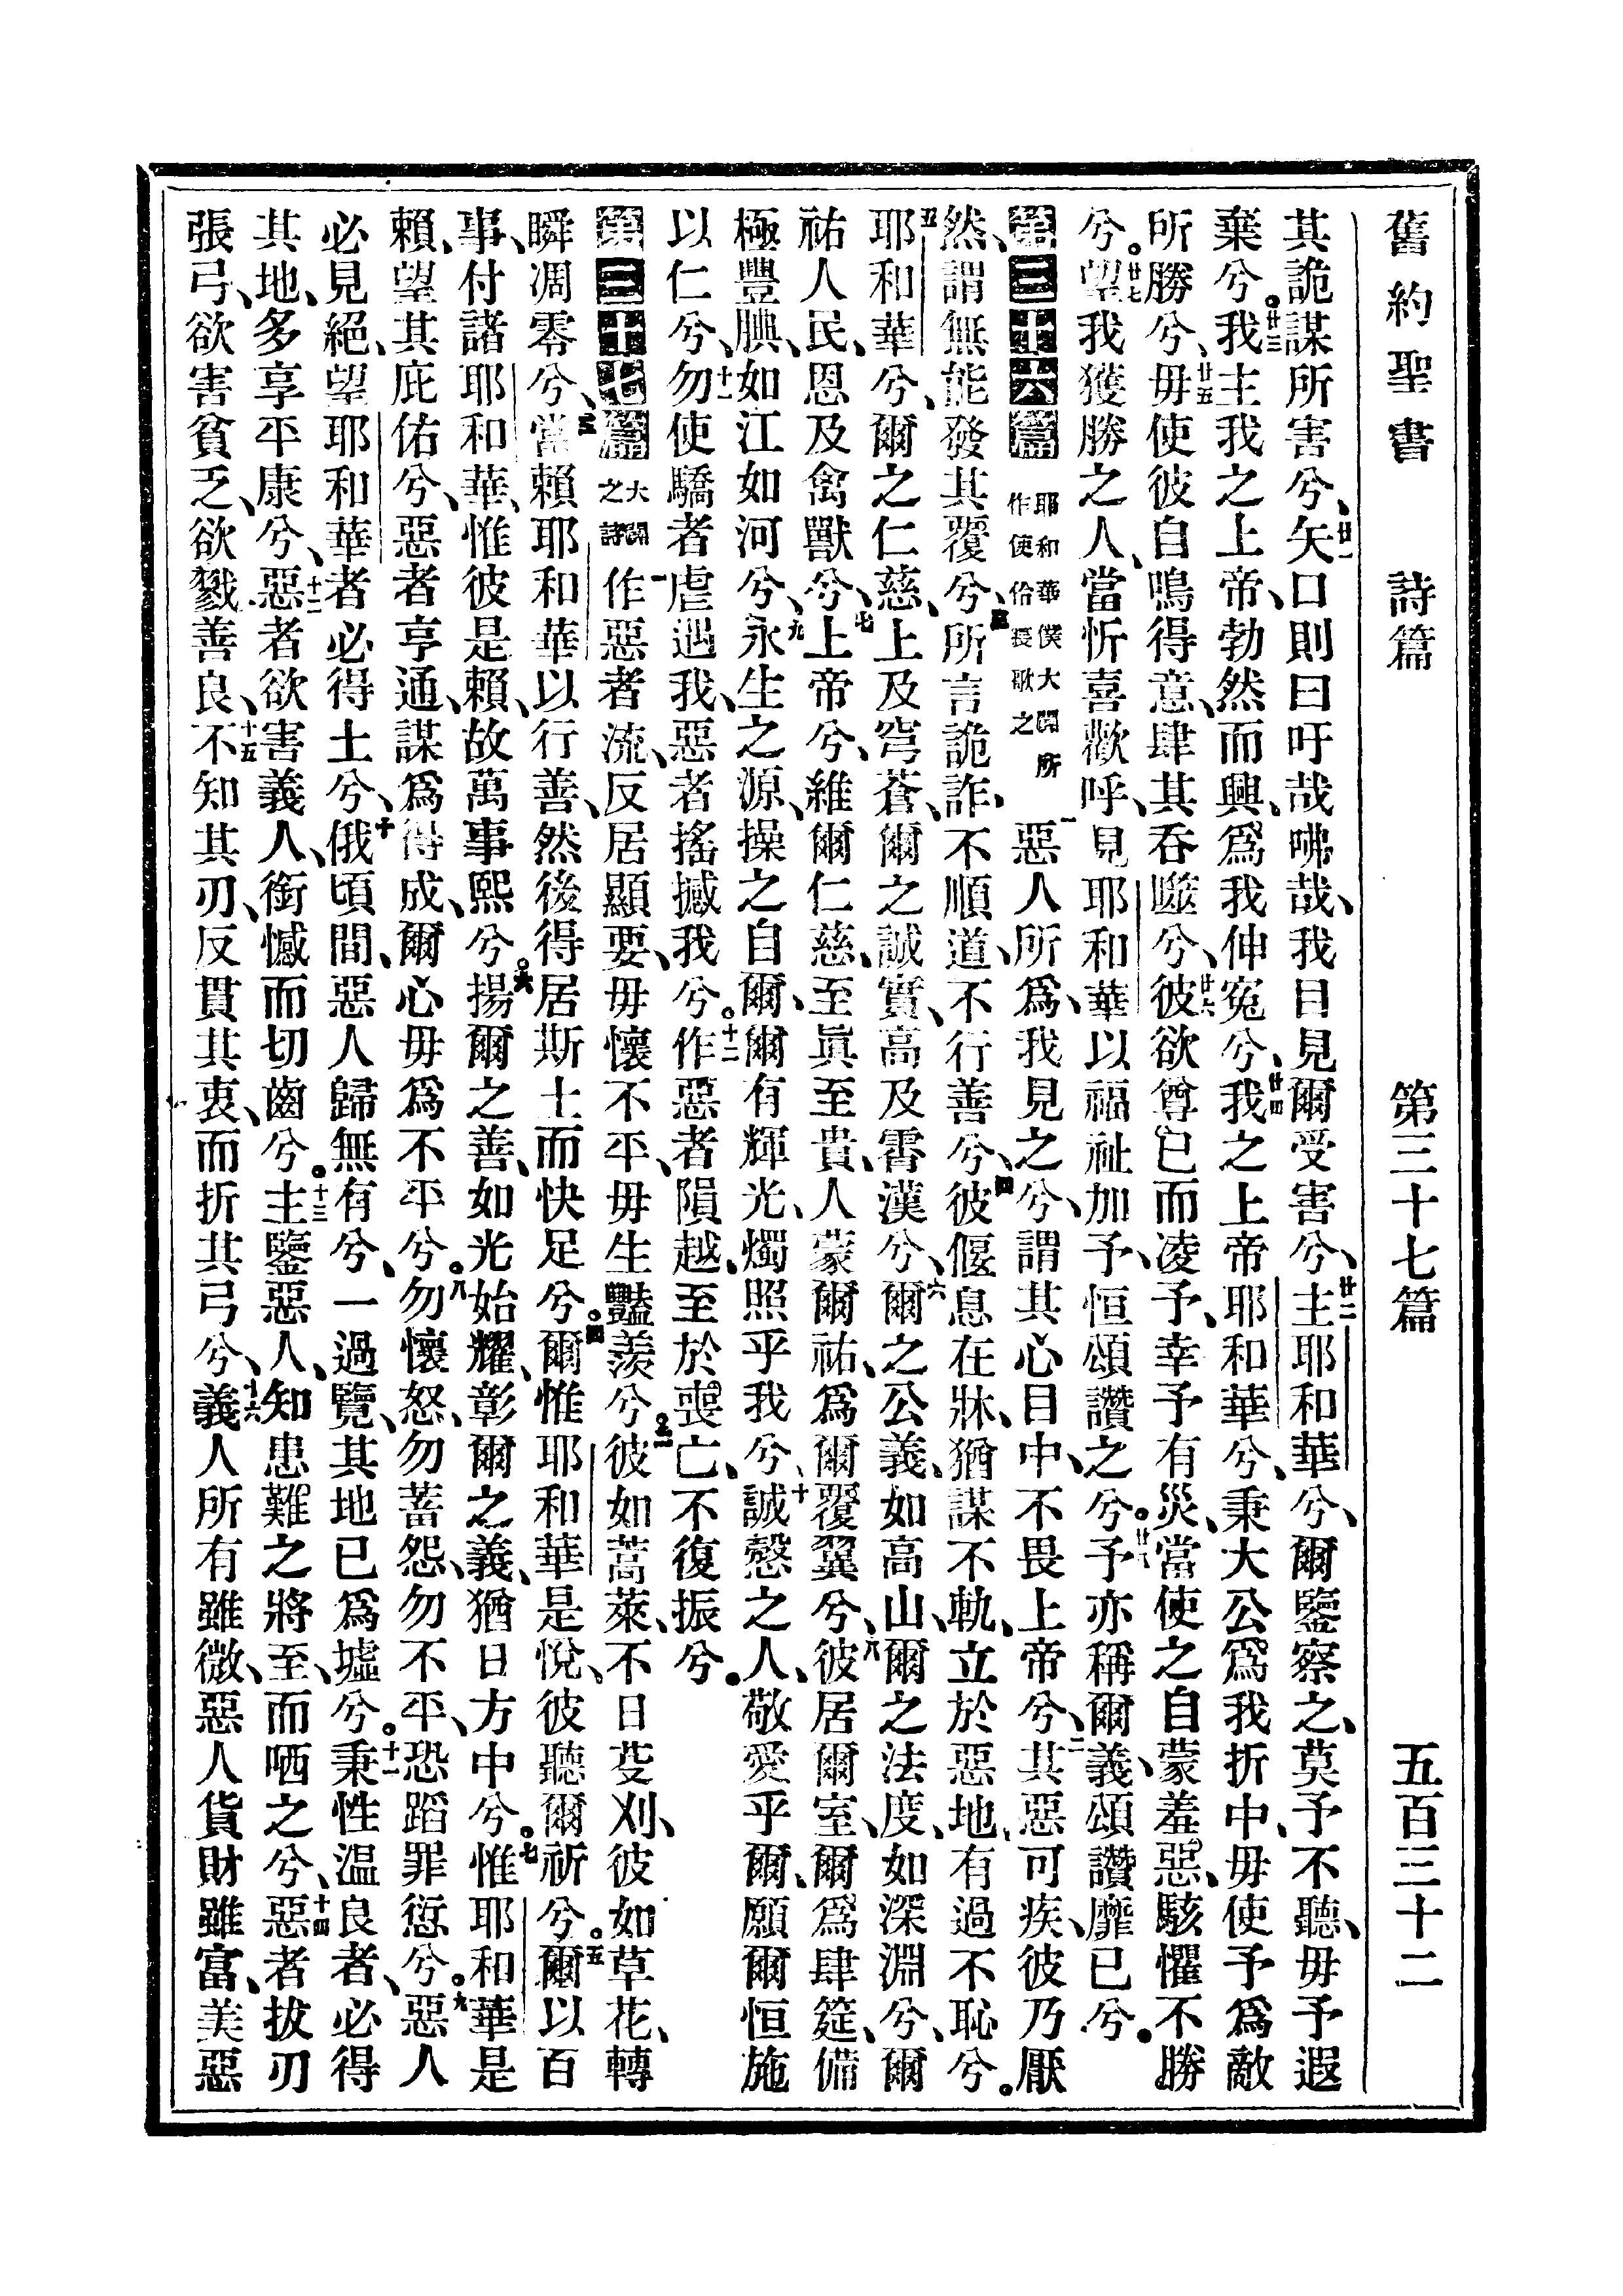 舊約聖書 詩篇 第三十七篇 五百三十二
其詭謀所害兮、廿一矢口則曰吁哉咈哉、我目見爾受害兮、廿二主耶和華兮、爾鑒察之、莫予不聽、毋予遐
棄兮。廿三我主我之上帝、勃然而興、爲我伸寃兮、廿四我之上帝耶和華兮、秉大公爲我折中、毋使予爲敵
所勝兮、廿五毋使彼自鳴得意、肆其吞噬兮、廿六彼欲尊己而凌予、幸予有災、當使之自蒙羞惡、駭懼不勝
兮。廿七望我獲勝之人、當忻喜歡呼、見耶和華以福祉加予、恒頌讚之兮。廿八予亦稱爾義、頌讚靡已兮。
第三十六篇 耶和華僕大闢所作使伶長歌之 一惡人所爲、我見之兮、謂其心目中、不畏上帝兮、二其惡可疾、彼乃厭
然、謂無能發其覆兮、三所言詭詐、不順道、不行善兮、四彼偃息在牀、猶謀不軌、立於惡地、有過不恥兮。
五耶和華兮、爾之仁慈、上及穹蒼、爾之誠實、高及霄漢兮、六爾之公義、如高山、爾之法度、如深淵兮、爾
祐人民、恩及禽獸兮、七上帝兮、維爾仁慈、至眞至貴、人蒙爾祐、爲爾覆翼兮、八彼居爾室、爾爲肆筵、備
極豐腆、如江如河兮、九永生之源、操之自爾、爾有輝光、燭照乎我兮、十誠慤之人、敬愛乎爾、願爾恒施
以仁兮、十一勿使驕者虐遇我、惡者搖撼我兮。十二作惡者隕越、至於喪亡、不復振兮。
第三十七篇 大闢之詩 一作惡者流、反居顯要、毋懷不平、毋生豔羨兮。二彼如蒿萊、不日芟刈、彼如草花、轉
瞬凋零兮、三當賴耶和華以行善、然後得居斯土而快足兮。四爾惟耶和華是悅、彼聽爾祈兮。五爾以百
事、付諸耶和華、惟彼是賴、故萬事熙兮。六揚爾之善、如光始耀、彰爾之義、猶日方中兮。七惟耶和華是
賴、望其庇佑兮、惡者亨通、謀爲得成、爾心毋爲不平兮。八勿懷怒、勿蓄怨、勿不平、恐蹈罪愆兮。九惡人
必見絕、望耶和華者必得土兮、十俄頃間、惡人歸無有兮、一過覽、其地已爲墟兮。十一秉性溫良者、必得
其地、多享平康兮、十二惡者欲害義人、銜憾而切齒兮。十三主鑒惡人、知患難之將至、而哂之兮、十四惡者拔刃
張弓、欲害貧乏、欲戮善良、十五不知其刃、反貫其衷、而折其弓兮、十六義人所有雖微、惡人貨財雖富、美惡